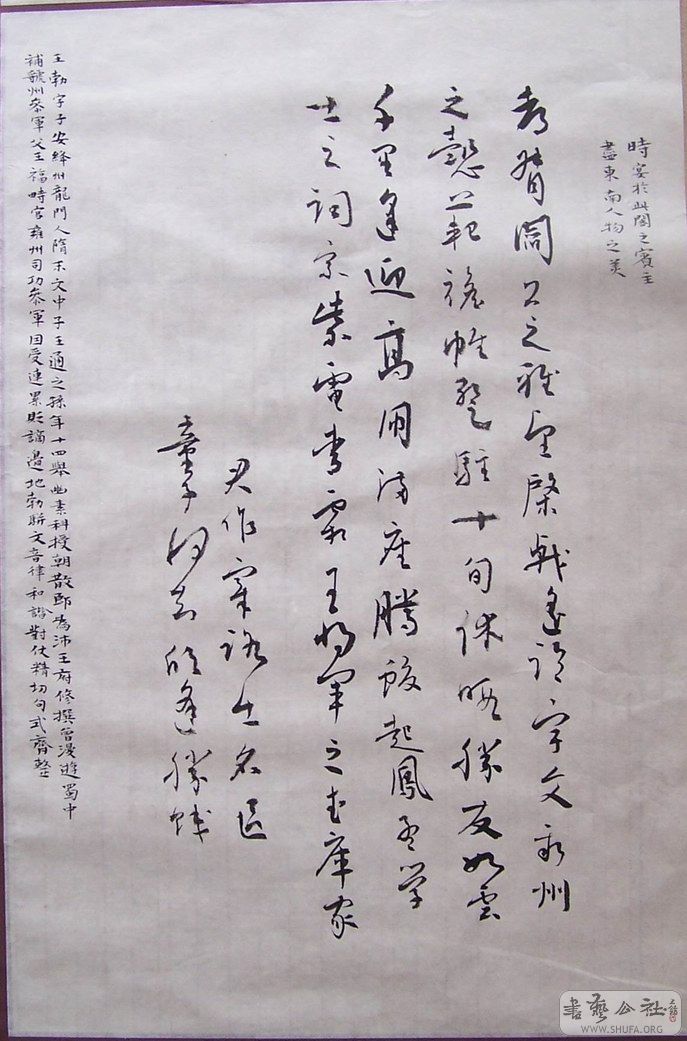 時宴於此閣之賓主
盡東南人物之美
都督閻公之雅望棨戟遙臨宇文新州
之懿範襜帷暫駐十旬休暇勝友如雲
千里逢迎高朋滿座騰蛟起鳳孟學
士之詞宗紫電青霜王將軍之武庫家
君作宰路出名區
童子何知躬逢勝餞
王勃字子安絳州龍門人隋末文中子王通之孫年十四舉幽素科授朝散郎為沛王府修撰曾漫遊蜀中
補虢州參軍父王福畤官雍州司功參軍因受連累貶謫邊地勃駢文音律和諧對仗精切句式齊整
書藝公社
WWW.SHUFA.ORG